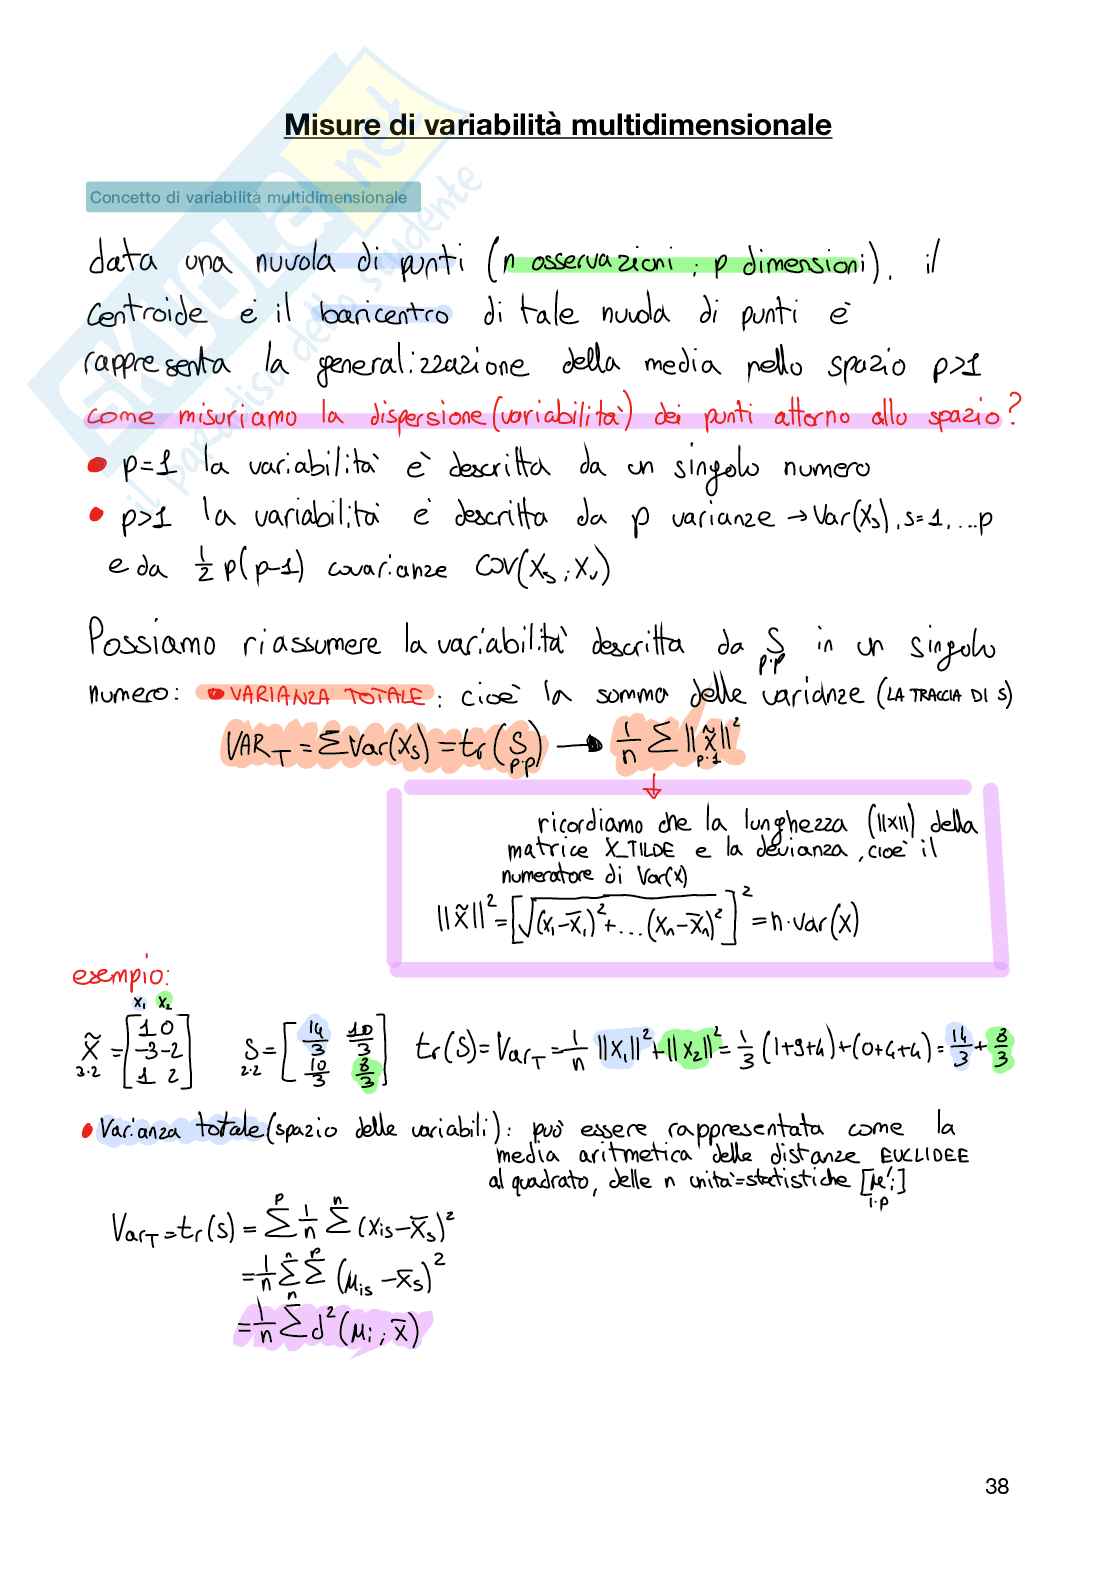 Misure di variabilità multidimensionale
SKUOLA.net
il paradiso dello studente
Concetto di variabilità multidimensionale
data una nuvola di punti (n osservazioni ; p dimensioni), il
centroide è il baricentro di tale nuvola di punti è
rappresenta la generalizzazione della media nello spazio p>1
come misuriamo la dispersione (variabilità) dei punti attorno allo spazio?
• p=1 la variabilità è descritta da un singolo numero
• p>1 la variabilità è descritta da p varianze → Var(Xs), s=1, ...p
e da 1/2 p(p-1) covarianze COV(Xs ; Xv)
Possiamo riassumere la variabilità descritta da S in un singolo
p·p
numero: • VARIANZA TOTALE : cioè la somma delle varianze (LA TRACCIA DI S)
VAR_T = Σ Var(Xs) = tr(S) → 1/n Σ ||x̃||²
p·p p·1
ricordiamo che la lunghezza (||x||) della
matrice X_TILDE e la devianza, cioè il
numeratore di Var(x)
||x̃||² = [√(x₁-x̄₁)²+...(xn-x̄n)²]² = n·var(x)
esempio:
x₁ x₂
X̃ = [1 0 / -3 -2 / 1 2] S = [14/3 10/3 / 10/3 8/3] tr(S) = Var_T = 1/n ||x₁||² + ||x₂||² = 1/3 (1+9+4)+(0+4+4) = 14/3 + 8/3
3·2 2·2
• Varianza totale (spazio delle variabili): può essere rappresentata come la
media aritmetica delle distanze EUCLIDEE
al quadrato, delle n unità=statistiche [μ'i]
1·p
Var_T = tr(S) = Σ^p 1/n Σ^n (xis - x̄s)²
= 1/n Σ^n Σ^p (μis - x̄s)²
= 1/n Σ^n d²(μi ; x̄)
38